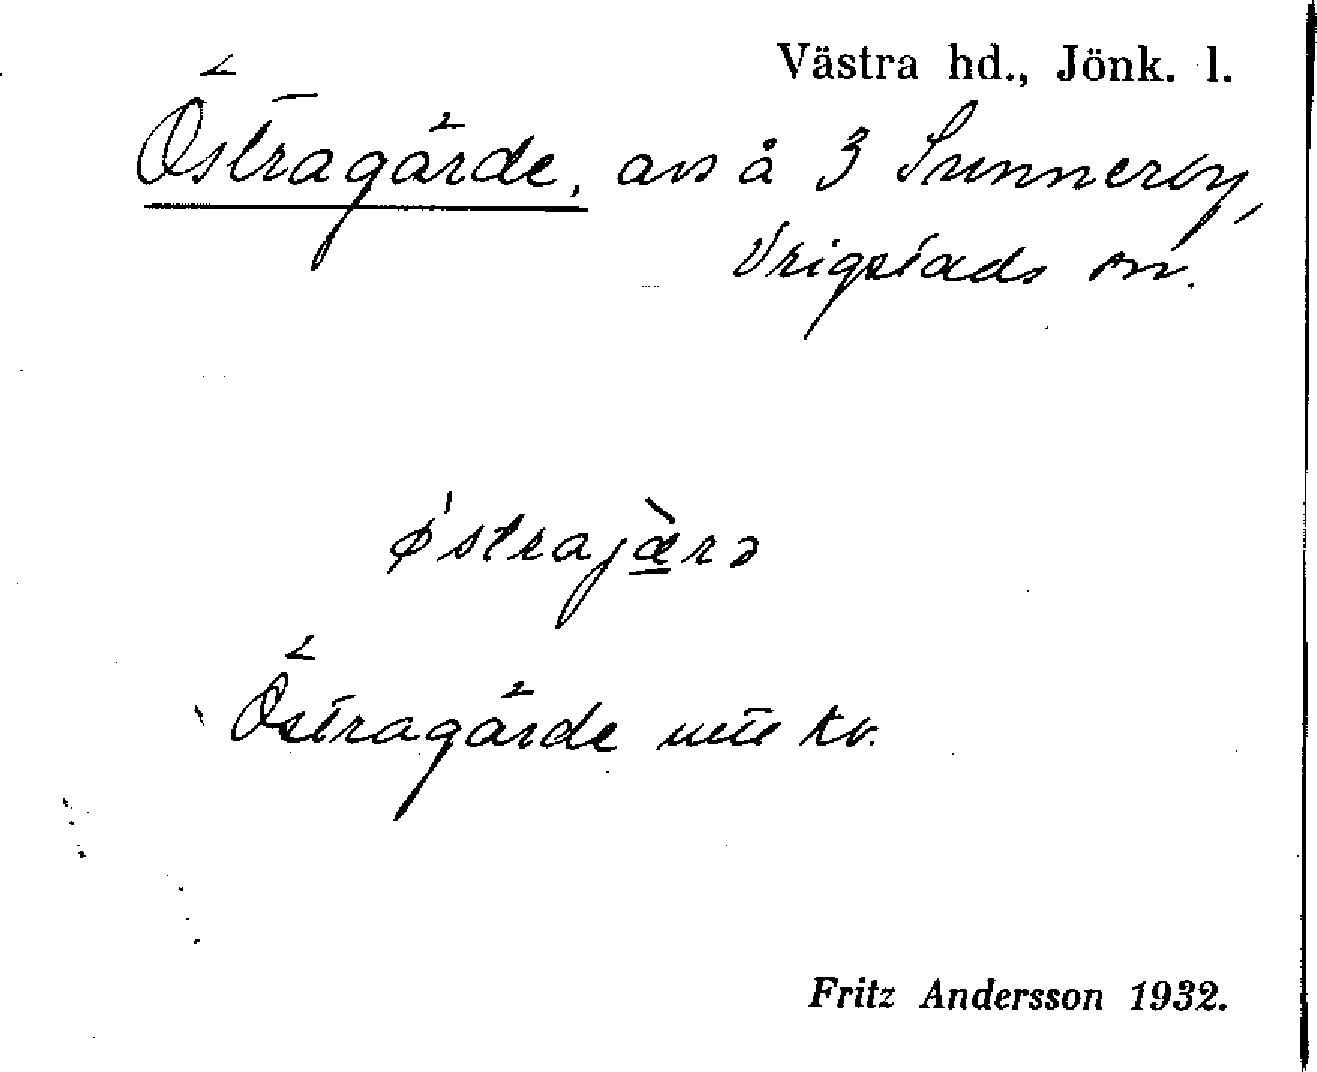 Västra hd., Jönk. l.
Östragärde, avs å 3 Sunnerby,
Vrigstads sn.
ǿstrajæ̀rə
Östragärde ute kv.
Fritz Andersson 1932.